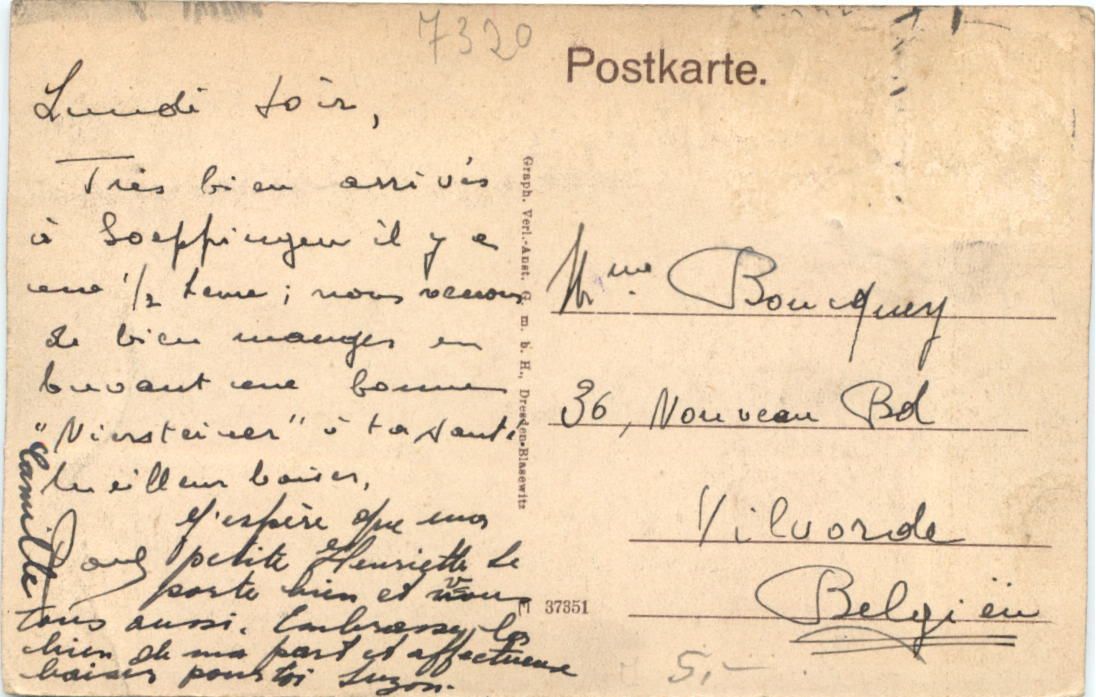 7320
Postkarte.
Lundi soir,
Très bien arrivés
à Goeppingen il y a
une 1/2 heure ; nous venons
de bien manger en
buvant une bonne
"Niersteiner" à ta santé
Meilleur baiser,
Paul
J'espère que ma
petite Henriette se
porte bien et vous
tous aussi. Embrasse les
bien de ma part et affectueux
baisers pour toi Suzon.
Camille
Graph. Verl.-Anst. G. m. b. H., Dresden-Blasewitz
37351
Mme Boucquey
36, Nouveau Bd
Vilvorde
Belgiën
5,-